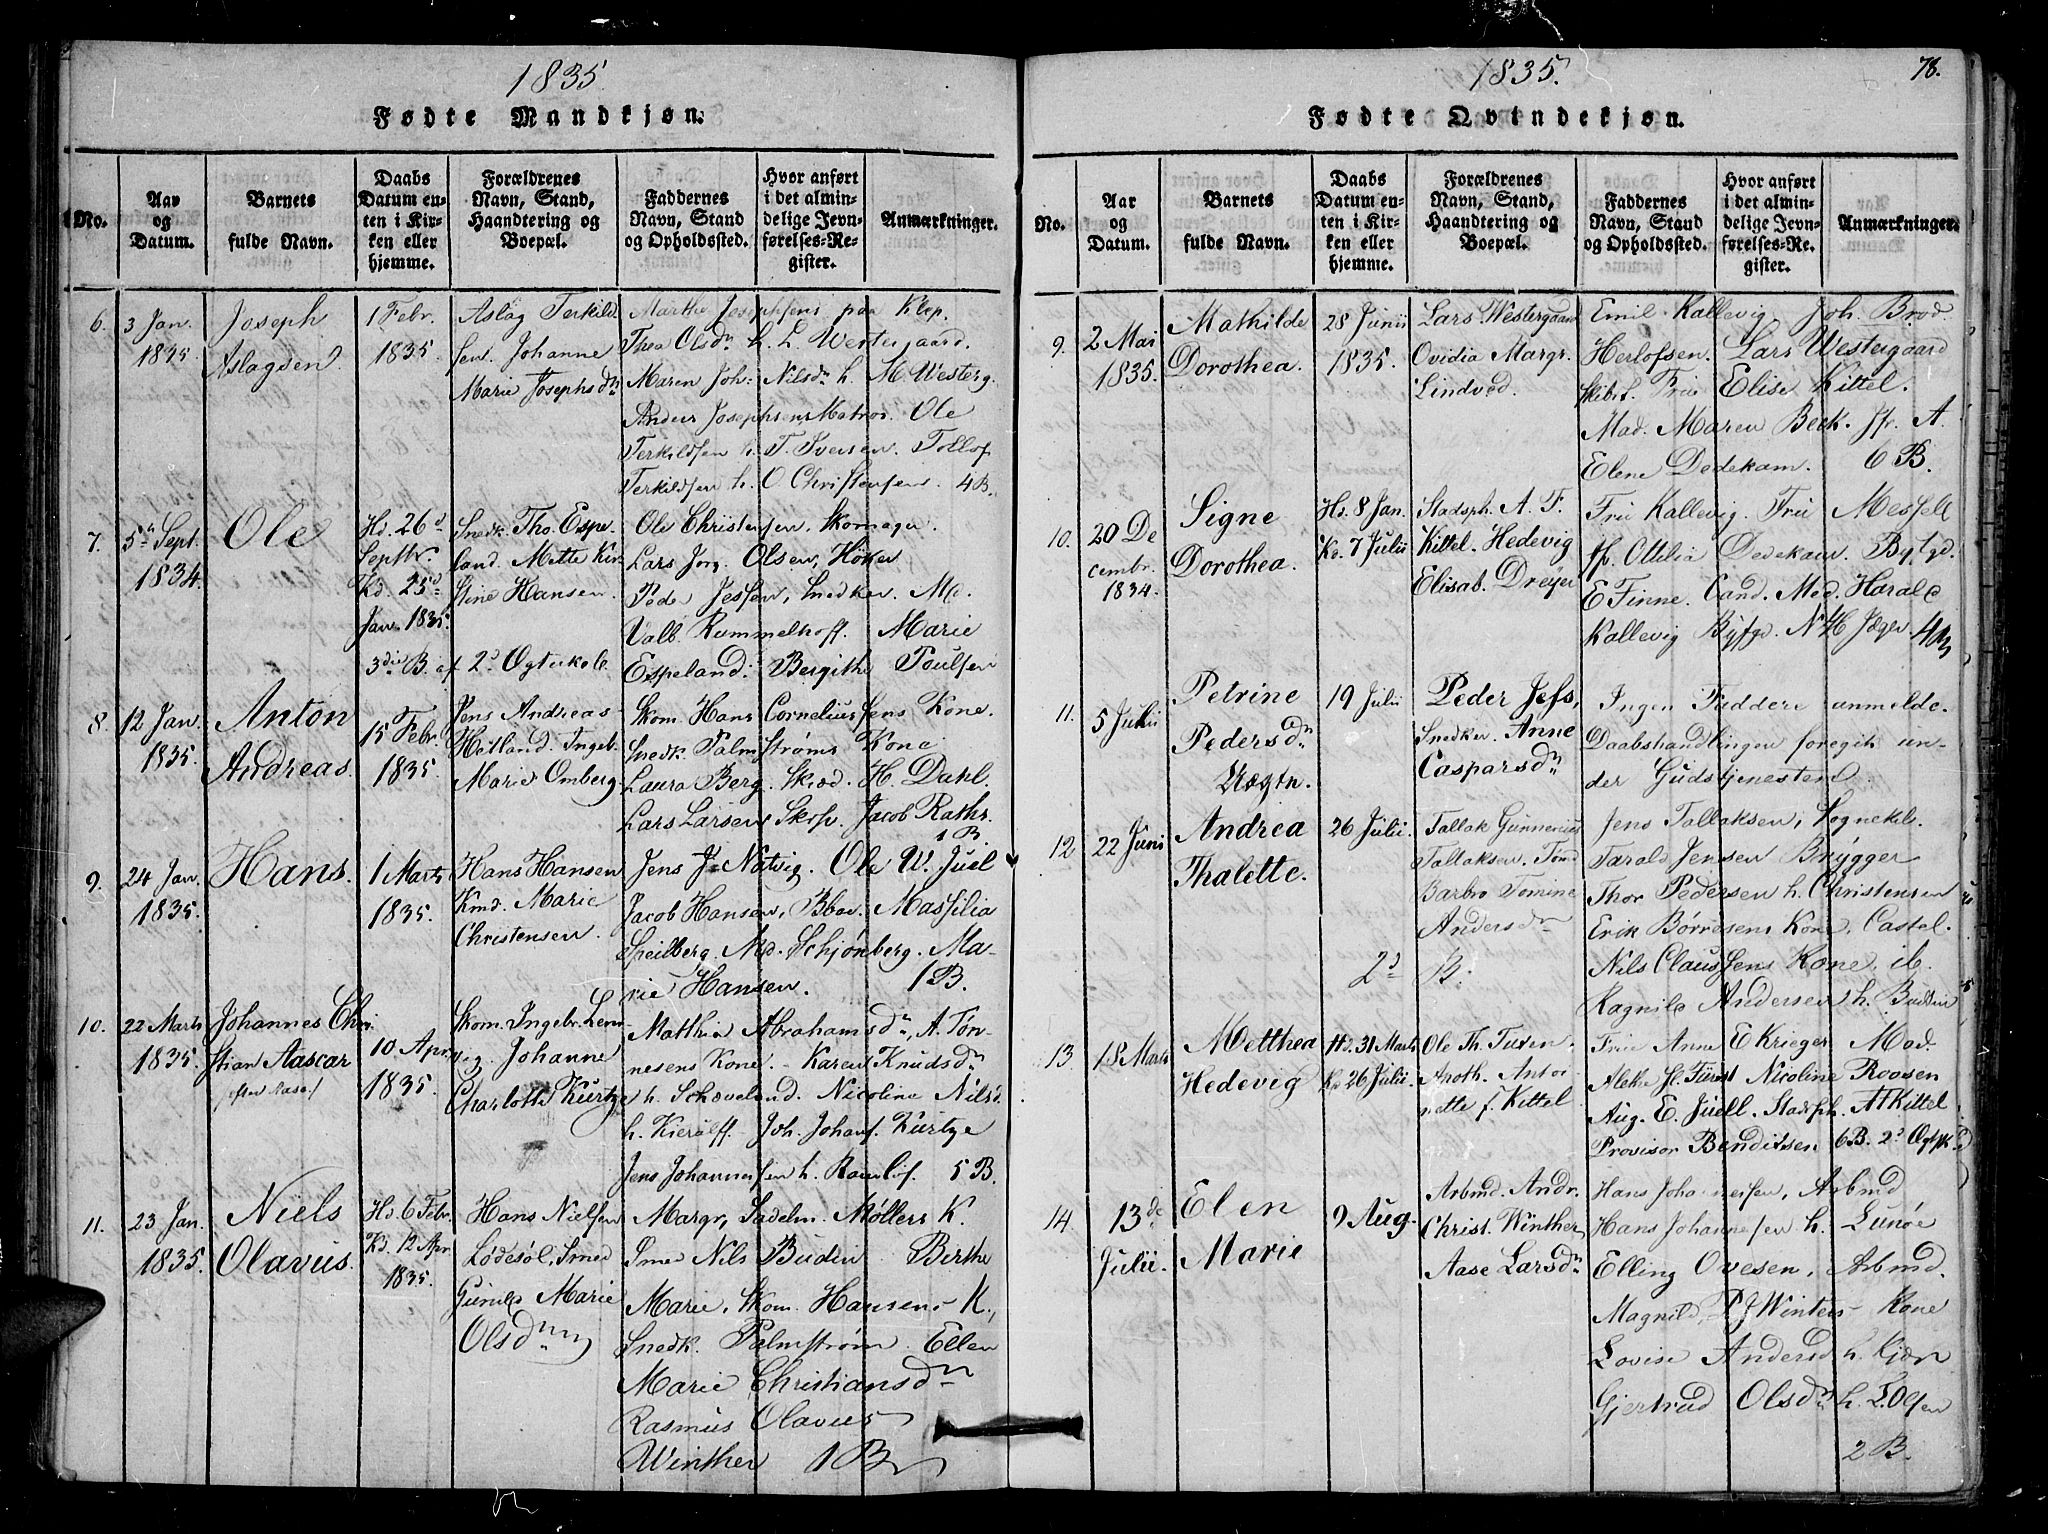 1835.
Fødte Mandkjøn.
No.
Aar og Datum.
Barnets fulde Navn.
Daabs Datum enten i Kirken eller hjemme.
Forældrenes Navn, Stand, Haandtering og Boepæl.
Faddernes Navn, Stand og Opholdssted.
Hvor anført i det almindelige Jevnførelses-Register.
Anmærkninger.
6.
3 Jan.
1835.
Joseph
Aslagsen
1 Febr.
1835.
Aslag Terkild
sen. Johanne
Marie Josephsdn
Marthe Josephsens paa Klep.
Thea Olsdn h. L. Westergaard.
Maren Joh: Nilsdn h. M. Westerg.
Anders Josephsens Matros. Ole
Terkildsen h. T. Iversen. Tollof
Terkildsen h. O Christensen. 4 B.
7.
5te Sept.
1834.
Ole
Hd. 26d
Septbr.
Kd. 25d
Jan. 1835.
Snedk. Tho. Espe
land. Mette Kir
stine Hansen.
3die B. af 2d Ægteskab.
Ole Christensen, Skomager.
Lars Jorg. Olsen, Høker
Peder Jessen, Snedker. Md.
Valb. Rummelhoff. Marie
Espeland. Bergithe Poulsen
8.
12 Jan.
1835.
Anton
Andreas.
15 Febr.
1835.
Jens Andreas
Hetland. Ingeb.
Marie Omberg.
Skom. Hans Corneliussens Kone.
Snedk. Palmstrøms Kone
Laura Berg. Skræd. H. Dahl.
Lars Larsen Skop. Jacob Raths.
1 B.
9.
24 Jan.
1835.
Hans.
1 Marts
1835.
Hans Hansen
Kmd. Marie
Christensen.
Jens J. Natvig. Ole W. Juel
Jacob Hansen, Massilia
Speilberg. Md. Schjønberg. Ma-
rie Hansen. 1 B.
10.
22 Marts
1835.
Johannes Chri
stian Aascar
10 Apr.
1835.
Skom. Ingebr. Lenn
vig. Johanne
Charlotte Kürtze
Mathia Abrahamsdn, A. Tøn-
nesens Kone. Karen Knudsdn
h. Schoveland. Nicoline Nilsd.
h. Kierulff. Joh. Johans. Kürtze
Jens Johannessen h. 5 B.
11.
23 Jan.
1835.
Niels
Olavus.
Hd. 6 Febr.
Kd. 12 Apr.
1835.
Hans Nielsen
Lødesøl, Smed
Gunild Marie
Olsdn
Margr. Sadelm. Møllers K.
Smed Nils Budin Birthe
Marie, Skom. Hansens K.,
Snedk. Palmstrøm Ellen
Marie Christiansdn
Rasmus Olavus
Winther 1 B
1835.
78.
Fødte Qvindekjøn.
No.
Aar og Datum.
Barnets fulde Navn.
Daabs Datum enten i Kirken eller hjemme.
Forældrenes Navn, Stand, Haandtering og Boepæl.
Faddernes Navn, Stand og Opholdssted.
Hvor anført i det almindelige Jevnførelses-Register.
Anmærkninger.
9.
2 Mai
1835.
Mathilde
Dorothea.
28 Junii
1835.
Lars Westergaard
Ovidia Margr.
Lindved.
Emil Kallevig. Joh. Brod.
Herlofsen. Lars Westergaard
Skibsf. Frue Elise Kittel.
Mad. Maren Beck. Jfr. A.
Elene Dedekam. 6 B.
10.
20 De
cembr.
1834.
Signe
Dorothea.
Hd. 8 Jan.
Kd. 7 Julii
Stadsph. A. F.
Kittel. Hedevig
Elisab. Dreyer
Frue Kallevig. Frue Messell
Jfr. Ottilia Dedekam. Bytgd.
E Finne. Cand. Med. Harald
Kallevig Byfgd. Jæger
11.
5 Julii
Petrine
Pedersdn
Uægtn.
19 Julii
Peder Jess,
Snedker. Anne
Caspersdn
Ingen Faddere anmeldt.
Daabshandlingen foregik un-
der Gudstjenesten.
12
22 Juni
Andrea
Thalette.
26 Julii.
Tallak Gunnerius
Tallaksen. Tømd
Barbro Tomine
Andersdn
2d B.
Jens Tallaksen, Vognekb.
Tarald Jensen Brygger
Thor Pedersen h. Christensen
Erik Børresens Kone, Castel.
Nils Claussens Kone, ib.
Ragnild Andersen h. Budin
13.
18 Marts
Metthea
Hedevig
Hd. 31 Marts
Kd 26 Julii.
Ole Th. Tuxen
Apoth. Antoi
nette f. Kittel
Frue Anne E Krieger Mad.
Nicoline Roosen
Aug. E. Juell. Stadsph. A F Kittel
Provisor Benditsen 6B. 2d
14.
13de
Julii.
Elen
Marie
9 Aug.
Arbmd. Andr.
Christ. Winther
Aase Larsdn
Hans Johannessen, Arbmd
Hans Johannessen h. Lunøe
Elling Ovesen, Arbmd.
Magnild, P J Winters Kone
Lovise Andersd h. Kjær
Gjertrud Olsdn h.
2 B.